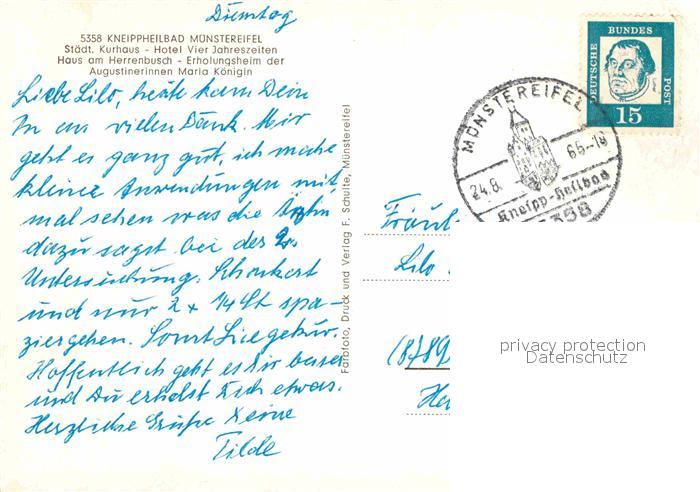 Dienstag
5358 KNEIPPHEILBAD MÜNSTEREIFEL
Städt. Kurhaus - Hotel Vier Jahreszeiten
Haus am Herrenbusch - Erholungsheim der
Augustinerinnen Maria Königin
Liebe Lilo, heute kam Dein
vielen Dank. Mir
geht es ganz gut, ich mache
kleine Anwendungen mit,
mal sehen was die Ärztin
dazu sagt bei der 2.
Untersuchung. Schonkost
und nur 2 x 1/4 St spa-
ziergehen. Sonst Liegekur.
Hoffentlich geht es Dir besser
und Du erholst Dich etwas.
Herzliche Grüße Deine
Tilde
Farbfoto, Druck und Verlag F. Schulte, Münstereifel
DEUTSCHE BUNDESPOST
15
MÜNSTEREIFEL
24.8. 65-18
Kneipp-Heilbad
5358
Fräul
Lilo
privacy protection
Datenschutz